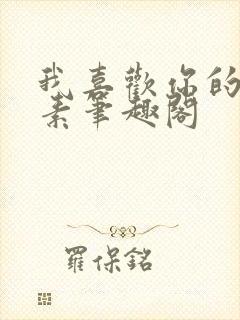 我喜歡你的
素筆趣閣
羅保銘